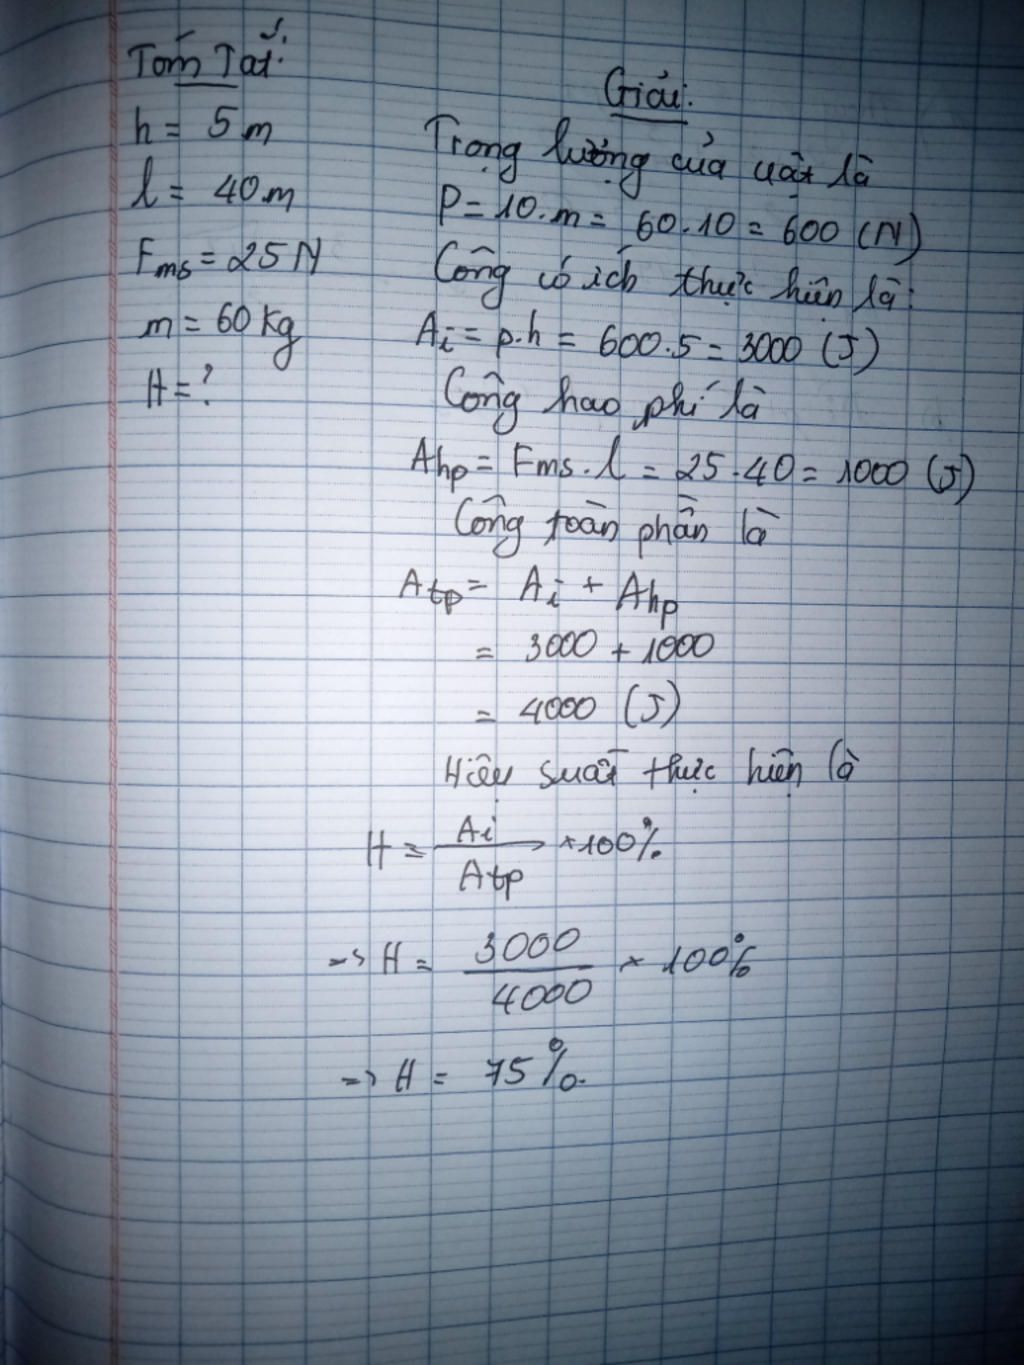 Tóm Tắt:
h = 5 m
l = 40 m
Fms = 25 N
m = 60 kg
H = ?
Giải:
Trọng lượng của vật là
P = 10.m = 60.10 = 600 (N)
Công có ích thực hiện là:
Ai = p.h = 600.5 = 3000 (J)
Công hao phí là
Ahp = Fms.l = 25.40 = 1000 (J)
Công toàn phần là
Atp = Ai + Ahp
= 3000 + 1000
= 4000 (J)
Hiệu suất thực hiện là
H = Ai / Atp × 100%
=> H = 3000 / 4000 × 100%
=> H = 75%.